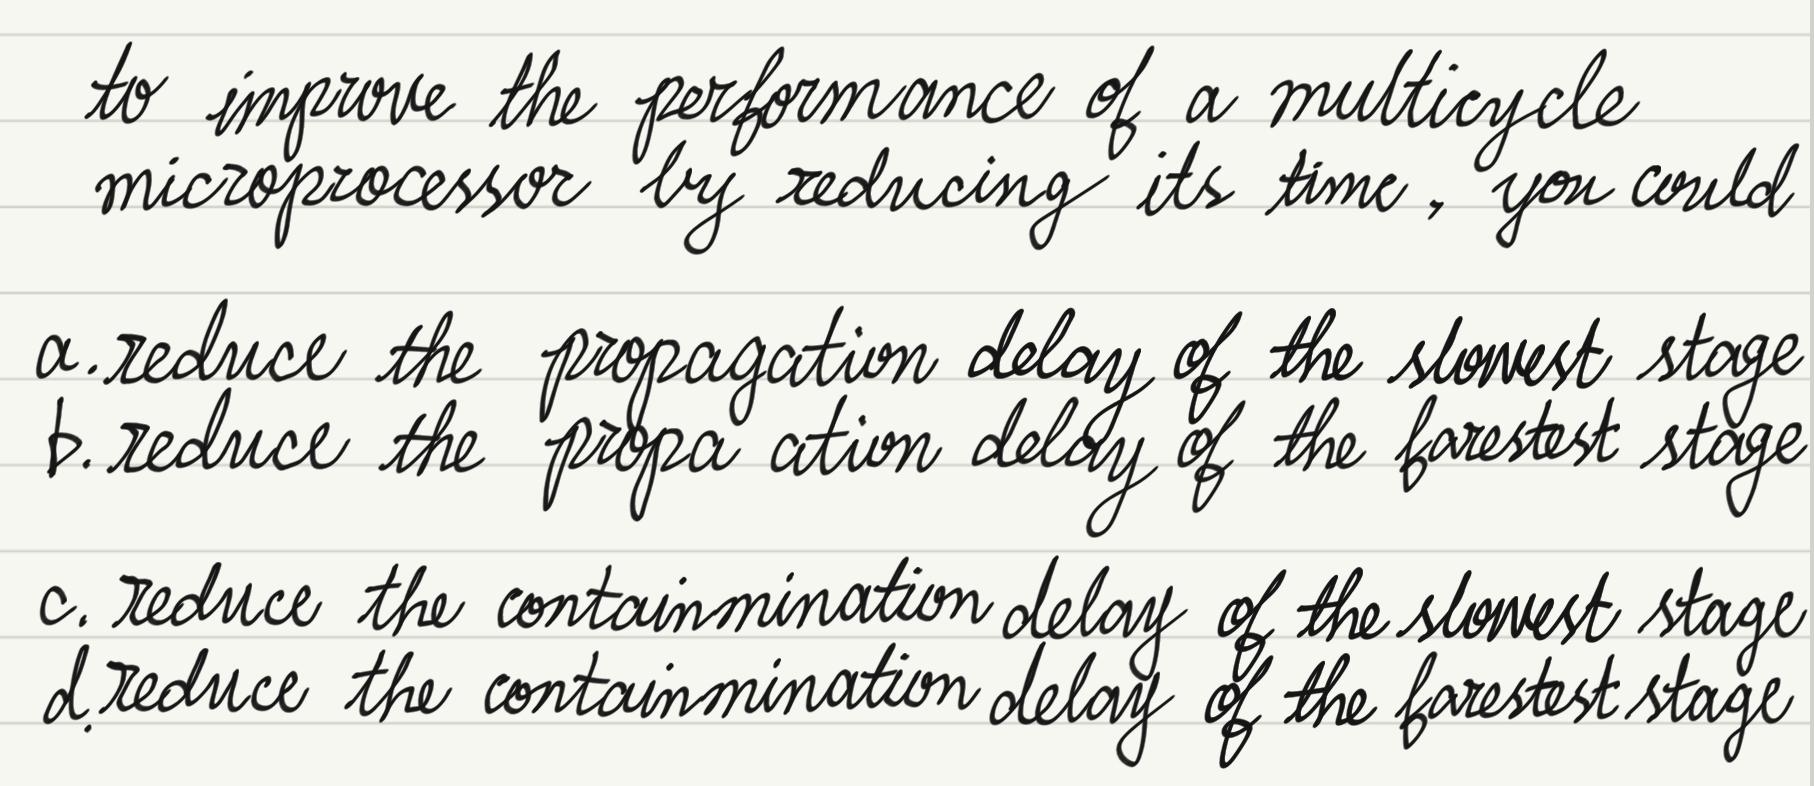 to improve the performance of a multicycle
microprocessor by reducing its time, you could
a. reduce the propagation delay of the slowest stage
b. reduce the propa ation delay of the farestest stage
c. reduce the containmination delay of the slowest stage
d. reduce the containmination delay of the farestest stage